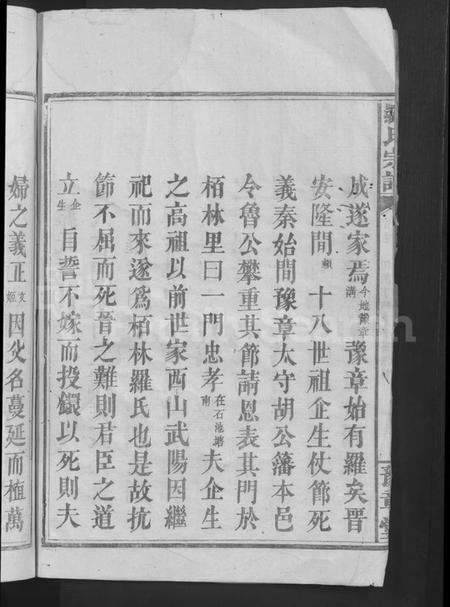 羅氏宗譜
豫章堂
成遂家焉今地節章溝豫章始有羅矣晋
安隆間十八世祖企生仗節死
義秦始間豫章太守胡公藩本邑
令魯公攀重其節請恩表其門於
栢林里曰一門忠孝在石池塘南夫企生
之高祖以前世家西山武陽因繼
祀而來遂爲栢林羅氏也是故抗
節不屈而死晉之難則君臣之道
立企生自誓不嫁而投繯以死則夫
婦之義正文姬因父名蔓延而植萬